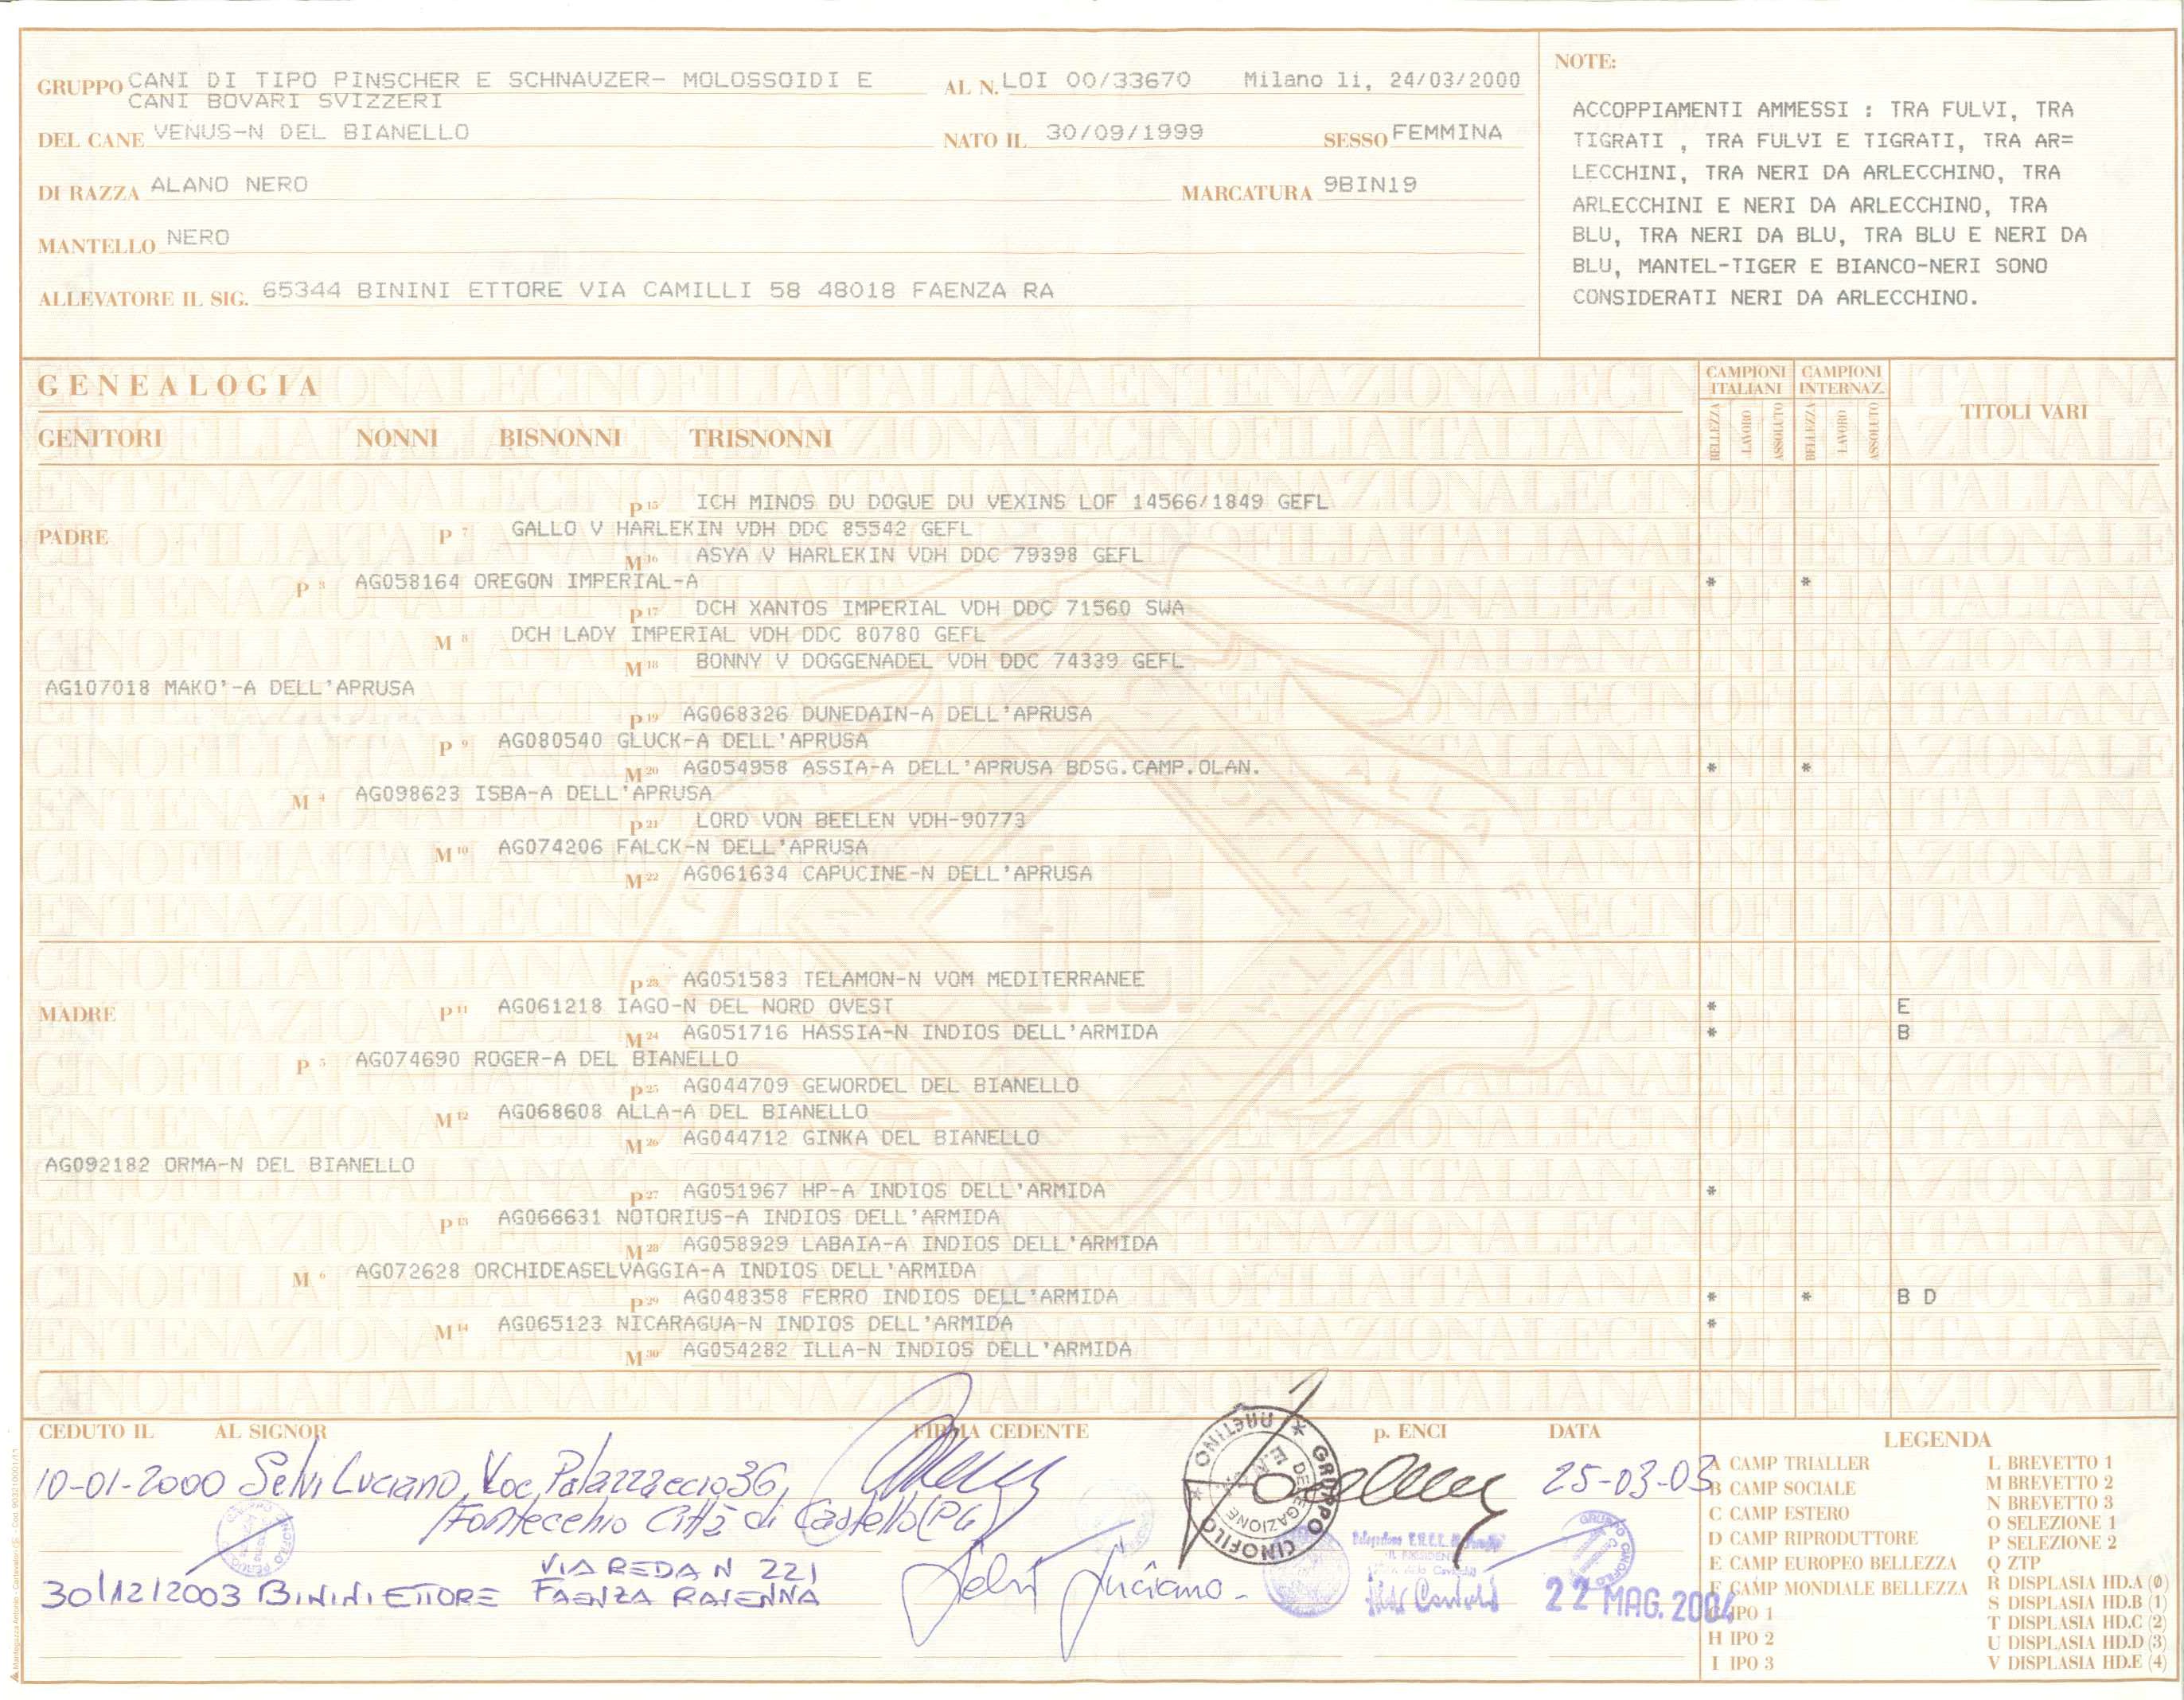 GRUPPO CANI DI TIPO PINSCHER E SCHNAUZER- MOLOSSOIDI E
CANI BOVARI SVIZZERI
AL N. LOI 00/33670 Milano li, 24/03/2000
DEL CANE VENUS-N DEL BIANELLO
NATO IL 30/09/1999 SESSO FEMMINA
DI RAZZA ALANO NERO
MARCATURA 9BIN19
MANTELLO NERO
ALLEVATORE IL SIG. 65344 BININI ETTORE VIA CAMILLI 58 48018 FAENZA RA
NOTE:
ACCOPPIAMENTI AMMESSI : TRA FULVI, TRA
TIGRATI , TRA FULVI E TIGRATI, TRA AR=
LECCHINI, TRA NERI DA ARLECCHINO, TRA
ARLECCHINI E NERI DA ARLECCHINO, TRA
BLU, TRA NERI DA BLU, TRA BLU E NERI DA
BLU, MANTEL-TIGER E BIANCO-NERI SONO
CONSIDERATI NERI DA ARLECCHINO.
GENEALOGIA
CAMPIONI ITALIANI
CAMPIONI INTERNAZ.
BELLEZZA LAVORO ASSOLUTO BELLEZZA LAVORO ASSOLUTO
TITOLI VARI
GENITORI NONNI BISNONNI TRISNONNI
P 15 ICH MINOS DU DOGUE DU VEXINS LOF 14566/1849 GEFL
PADRE P 7 GALLO V HARLEKIN VDH DDC 85542 GEFL
M 16 ASYA V HARLEKIN VDH DDC 79398 GEFL
P 3 AG058164 OREGON IMPERIAL-A * *
P 17 DCH XANTOS IMPERIAL VDH DDC 71560 SWA
M 8 DCH LADY IMPERIAL VDH DDC 80780 GEFL
M 18 BONNY V DOGGENADEL VDH DDC 74339 GEFL
AG107018 MAKO'-A DELL'APRUSA
P 19 AG068326 DUNEDAIN-A DELL'APRUSA
P 9 AG080540 GLUCK-A DELL'APRUSA
M 20 AG054958 ASSIA-A DELL'APRUSA BDSG.CAMP.OLAN. * *
M 4 AG098623 ISBA-A DELL'APRUSA
P 21 LORD VON BEELEN VDH-90773
M 10 AG074206 FALCK-N DELL'APRUSA
M 22 AG061634 CAPUCINE-N DELL'APRUSA
P 23 AG051583 TELAMON-N VOM MEDITERRANEE
MADRE P 11 AG061218 IAGO-N DEL NORD OVEST * E
M 24 AG051716 HASSIA-N INDIOS DELL'ARMIDA * B
P 5 AG074690 ROGER-A DEL BIANELLO
P 25 AG044709 GEWORDEL DEL BIANELLO
M 12 AG068608 ALLA-A DEL BIANELLO
M 26 AG044712 GINKA DEL BIANELLO
AG092182 ORMA-N DEL BIANELLO
P 27 AG051967 HP-A INDIOS DELL'ARMIDA *
P 13 AG066631 NOTORIUS-A INDIOS DELL'ARMIDA
M 28 AG058929 LABAIA-A INDIOS DELL'ARMIDA
M 6 AG072628 ORCHIDEASELVAGGIA-A INDIOS DELL'ARMIDA
P 29 AG048358 FERRO INDIOS DELL'ARMIDA * * B D
M 14 AG065123 NICARAGUA-N INDIOS DELL'ARMIDA *
M 30 AG054282 ILLA-N INDIOS DELL'ARMIDA
CEDUTO IL AL SIGNOR FIRMA CEDENTE p. ENCI DATA
10-01-2000 Selvi Luciano, Voc. Palazzaccio 36, 25-03-03
Fontecchio Città di Castello (PG)
GRUPPO CINOFILO ARETINO
DELEGAZIONE E.N.C.I.
30/12/2003 BININI ETTORE VIA REDA N 221
FAENZA RAVENNA
Selvi Luciano
22 MAG. 2004
LEGENDA
A CAMP TRIALLER
B CAMP SOCIALE
C CAMP ESTERO
D CAMP RIPRODUTTORE
E CAMP EUROPEO BELLEZZA
F CAMP MONDIALE BELLEZZA
G IPO 1
H IPO 2
I IPO 3
L BREVETTO 1
M BREVETTO 2
N BREVETTO 3
O SELEZIONE 1
P SELEZIONE 2
Q ZTP
R DISPLASIA HD.A (0)
S DISPLASIA HD.B (1)
T DISPLASIA HD.C (2)
U DISPLASIA HD.D (3)
V DISPLASIA HD.E (4)